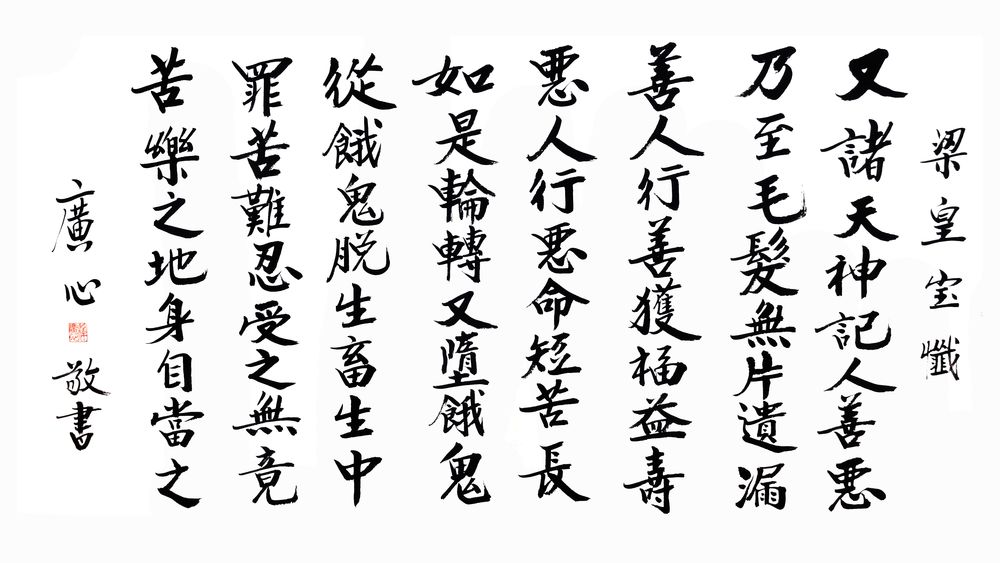 梁皇宝懺
又諸天神記人善惡
乃至毛髮無片遺漏
善人行善獲福益壽
惡人行惡命短苦長
如是輪轉又墮餓鬼
從餓鬼脫生畜生中
罪苦難忍受之無竟
苦樂之地身自當之
廣心
敬書